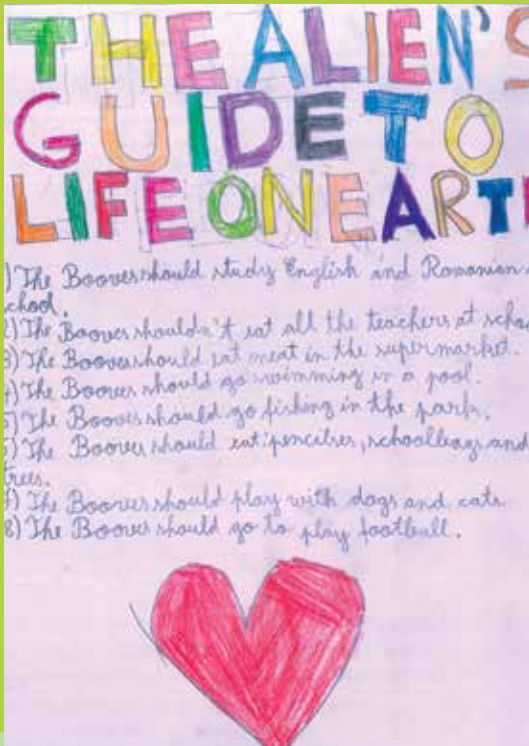 THE ALIEN'S
GUIDE TO
LIFE ON EART
1) The Booves should study English and Romanian
chool.
2) The Booves shouldn't eat all the teachers at schoo
3) The Booves should eat meat in the supermarket.
4) The Booves should go swimming in a pool.
5) The Booves should go fishing in the park.
6) The Booves should eat: pencilses, schoolbags and
trees.
7) The Booves should play with dogs and cats
8) The Booves should go to play football.